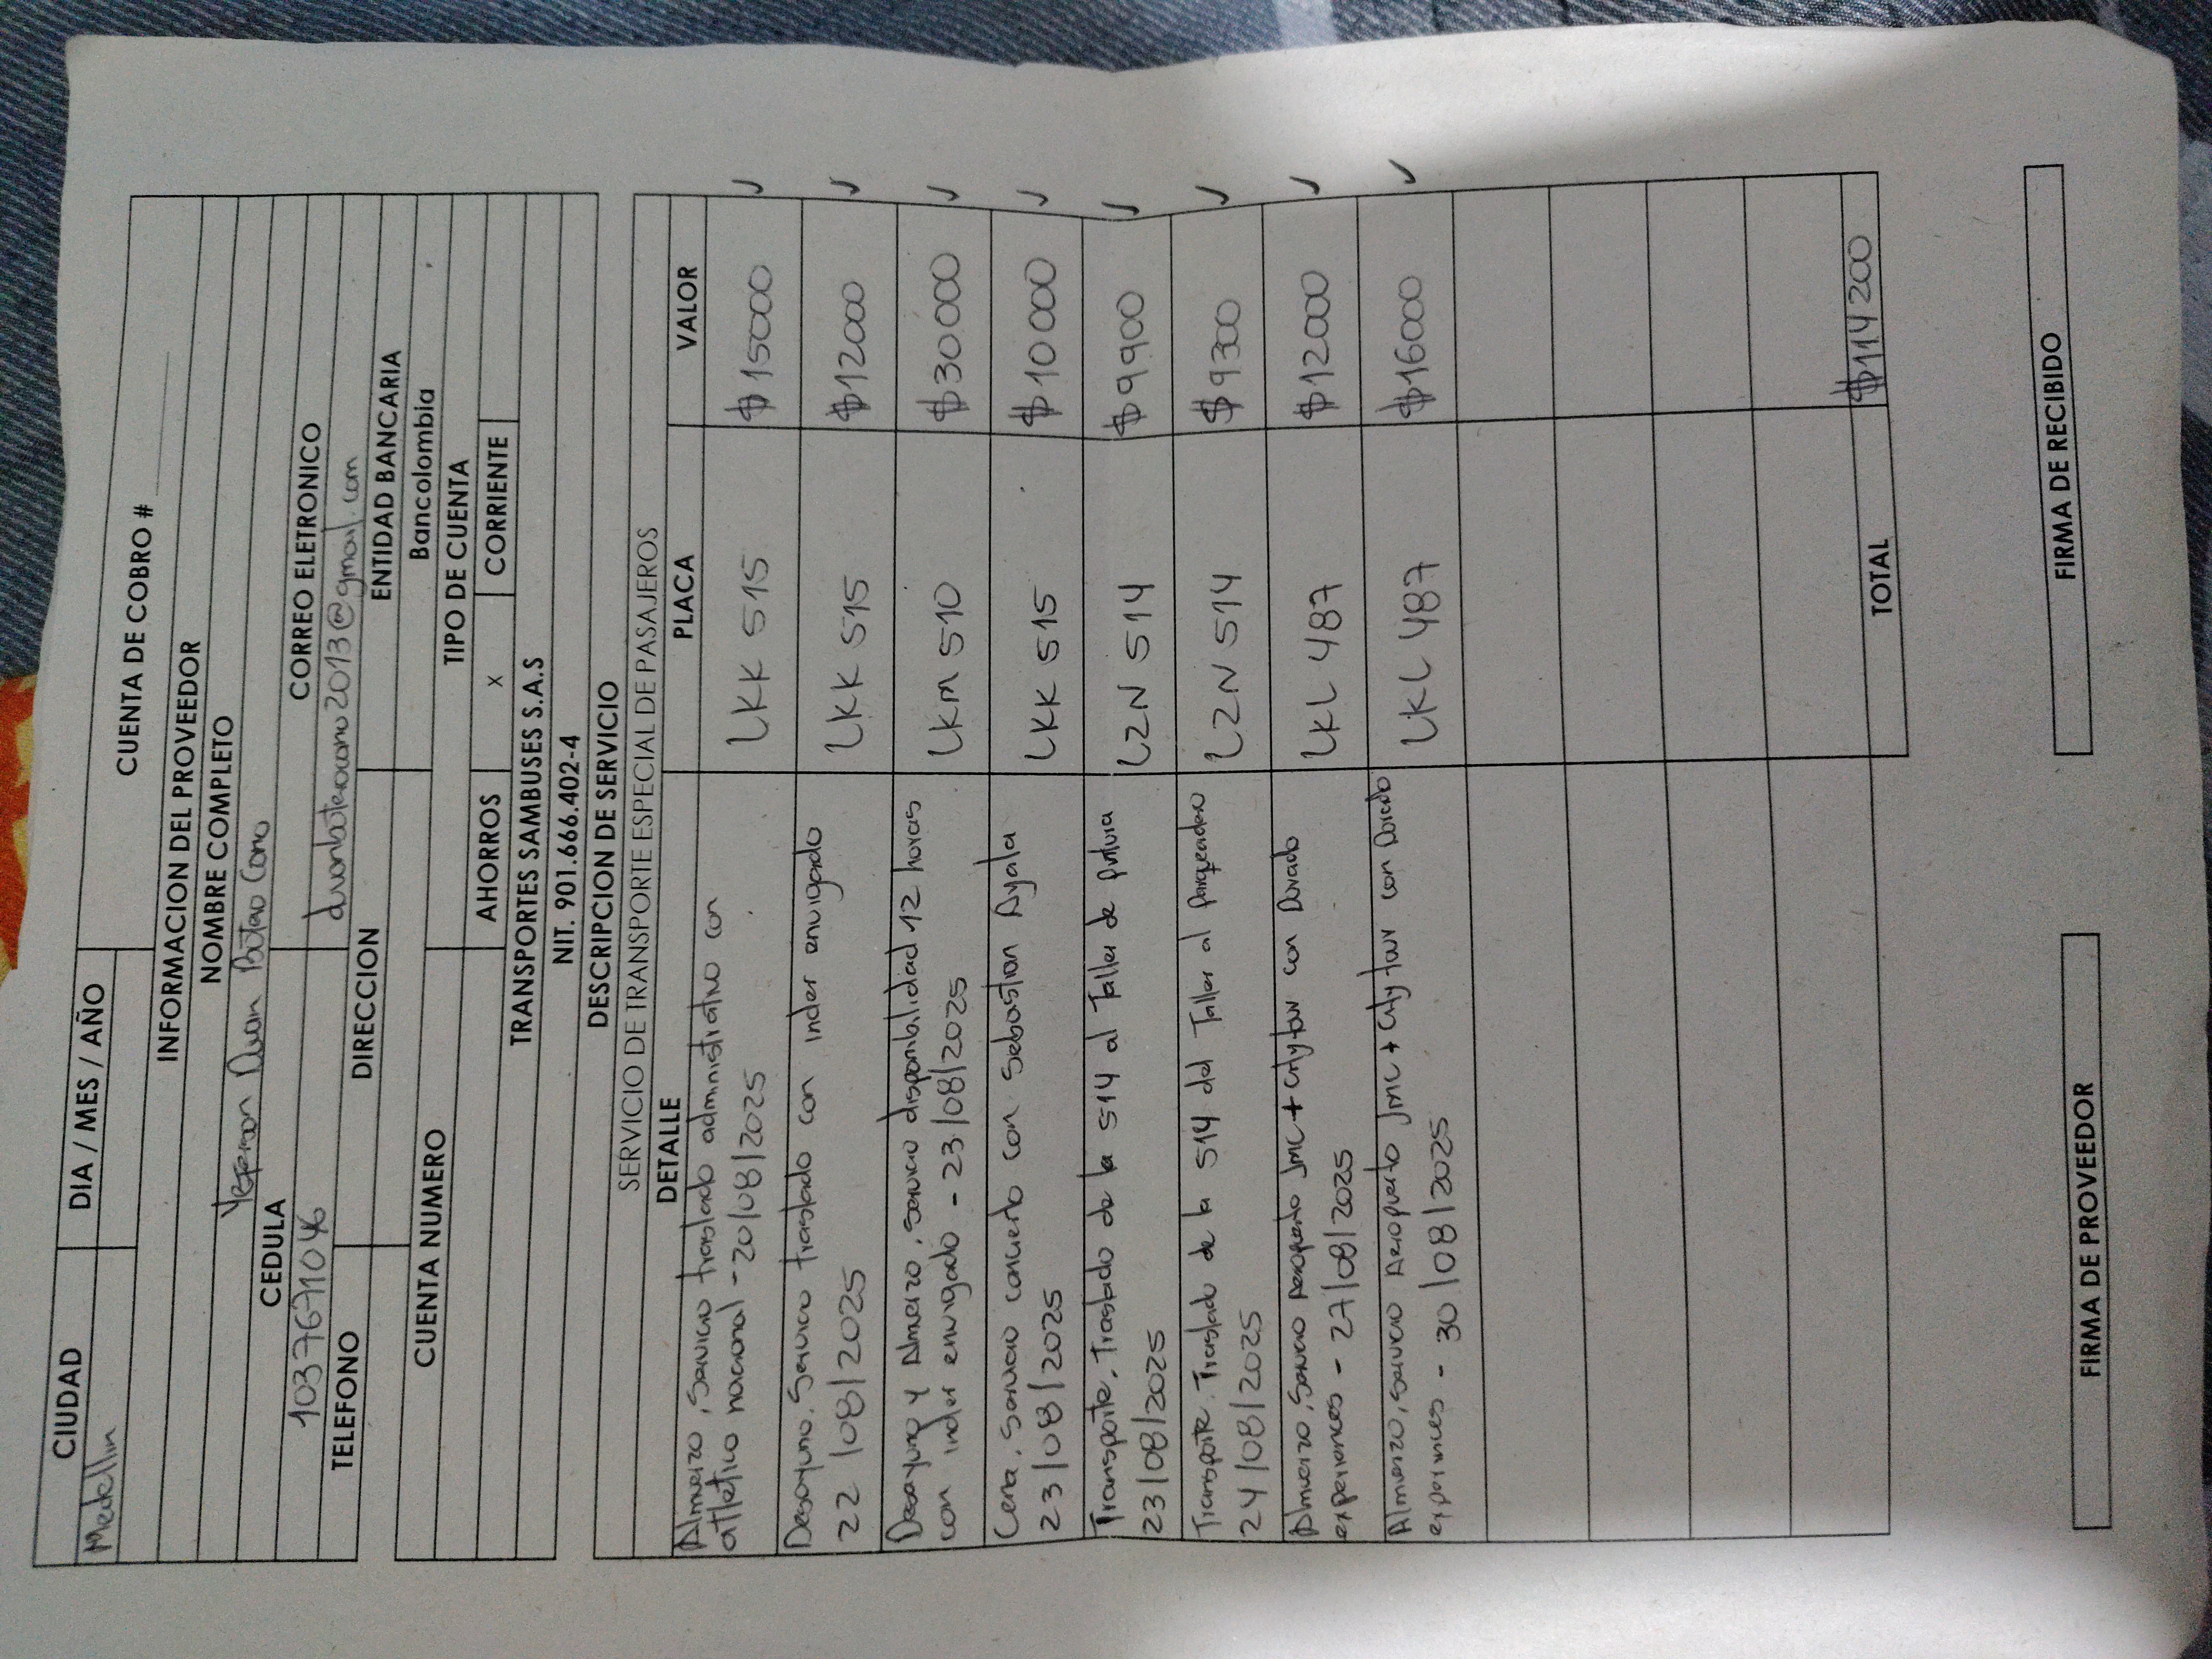 CIUDAD DIA / MES / AÑO CUENTA DE COBRO #
Medellin
INFORMACION DEL PROVEEDOR
NOMBRE COMPLETO
Yeferson Duvan Botero Cano
CEDULA CORREO ELETRONICO
1037671046 duvanboterocano2013@gmail.com
TELEFONO DIRECCION ENTIDAD BANCARIA
Bancolombia
CUENTA NUMERO TIPO DE CUENTA
AHORROS x CORRIENTE
TRANSPORTES SAMBUSES S.A.S
NIT. 901.666.402-4
DESCRIPCION DE SERVICIO
SERVICIO DE TRANSPORTE ESPECIAL DE PASAJEROS
DETALLE PLACA VALOR
Almerzo, Servicio traslado administrativo con
atletico nacional - 20/08/2025 LKK 515 $15000 ✓
Desayuno, Servicio traslado con inder envigado
22/08/2025 LKK 515 $12000 ✓
Desayuno y Almerzo, servicio disponibilidad 12 horas
con inder envigado - 23/08/2025 LKM 510 $30000 ✓
Cena, Servicio concierto con Sebastian Ayala
23/08/2025 LKK 515 $10000 ✓
Transporte, Traslado de la 514 al Taller de pintura
23/08/2025 LZN 514 $9900 ✓
Transporte, Traslado de la 514 del Taller al parqueadero
24/08/2025 LZN 514 $9300 ✓
Almerzo, Servicio Aeropuerto JMC + Citytour con Dorado
experiences - 27/08/2025 LKL 487 $12000 ✓
Almerzo, servicio Aeropuerto JMC + City tour con Dorado
- 30/08/2025 LKL 487 $16000 ✓
TOTAL $114200
FIRMA DE PROVEEDOR FIRMA DE RECIBIDO